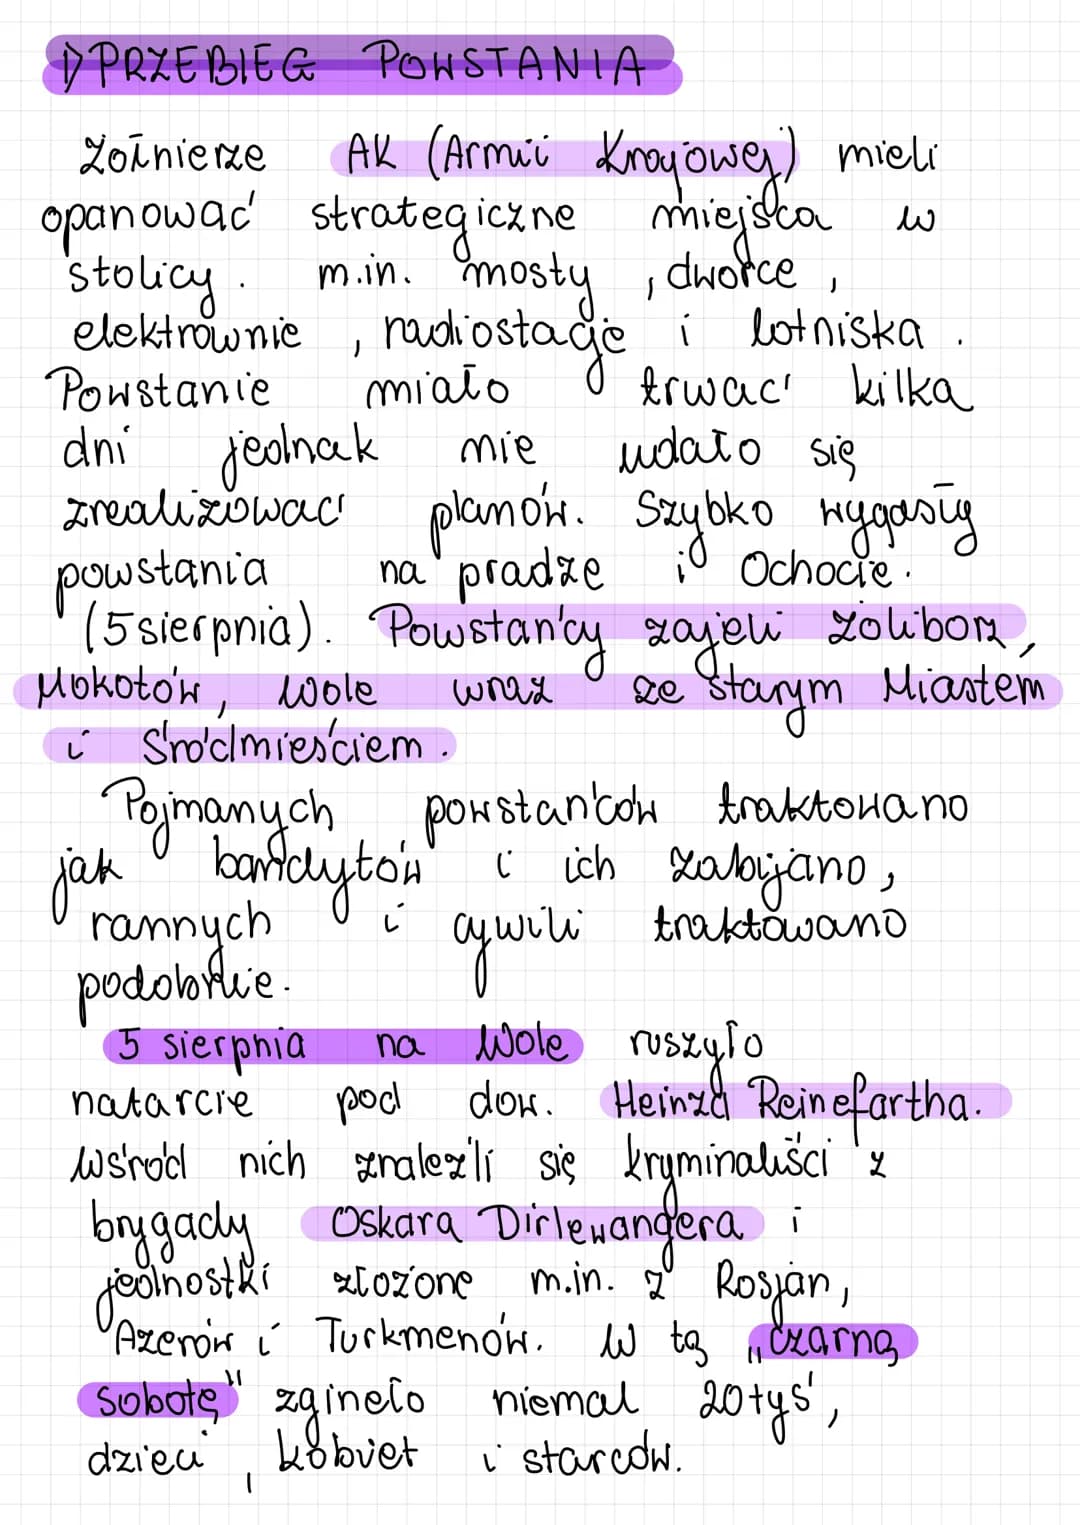 1) PRZEBIEG POWSTANIA
Żołnierze AK (Armii Krajowej) mieli
opanować strategiczne miejsca w
stolicy. m.in. mosty, dworce,
elektrownie, radiostacje i lotniska.
Powstanie miało trwać kilka
dni jednak nie udało się
zrealizować planów. Szybko wygasły
powstania na pradze i Ochocie.
(5 sierpnia). Powstańcy zajeli żoliborz,
Mokotów, Wole wraz ze starym Miastem
i Śródmieściem.
Pojmanych powstańców traktowano
jak bandytów i ich zabijano,
rannych i cywili traktowano
podobnie.
5 sierpnia na Wole ruszyło
natarcie pod dow. Heinza Reinefartha.
Wśród nich znaleźli się kryminaliści z
brygady Oskara Dirlewangera i
jednostki złożone m.in. z Rosjan,
Azerów i Turkmenów. W tą „czarną
sobotę" zgineło niemal 20tyś,
dzieci, kobiet i starców.